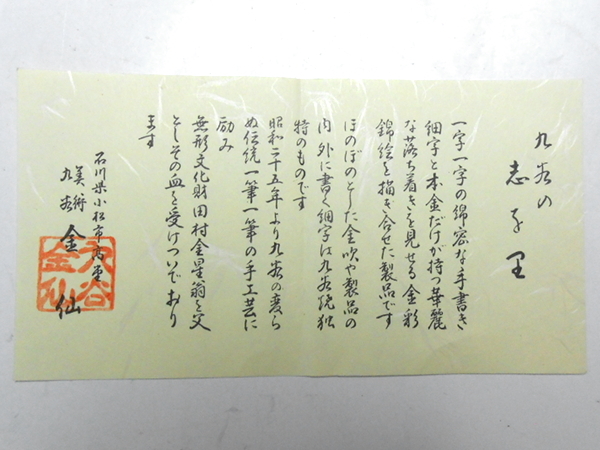 九谷の
志をり
一字一字の綿密な手書き
細字と本金だけが持つ華麗
な落ち着きを見せる金彩
錦絵を描き合せた製品です
ほのぼのとした金吹や製品の
内外に書く細字は九谷焼独
特のものです
昭和二十五年より九谷の変ら
ぬ伝統一筆一筆の手工芸に
励み
無形文化財田村金星翁を父
としその血を受けついでおり
ます
石川県小松市高堂
美術
九谷
金仙
九谷
金仙